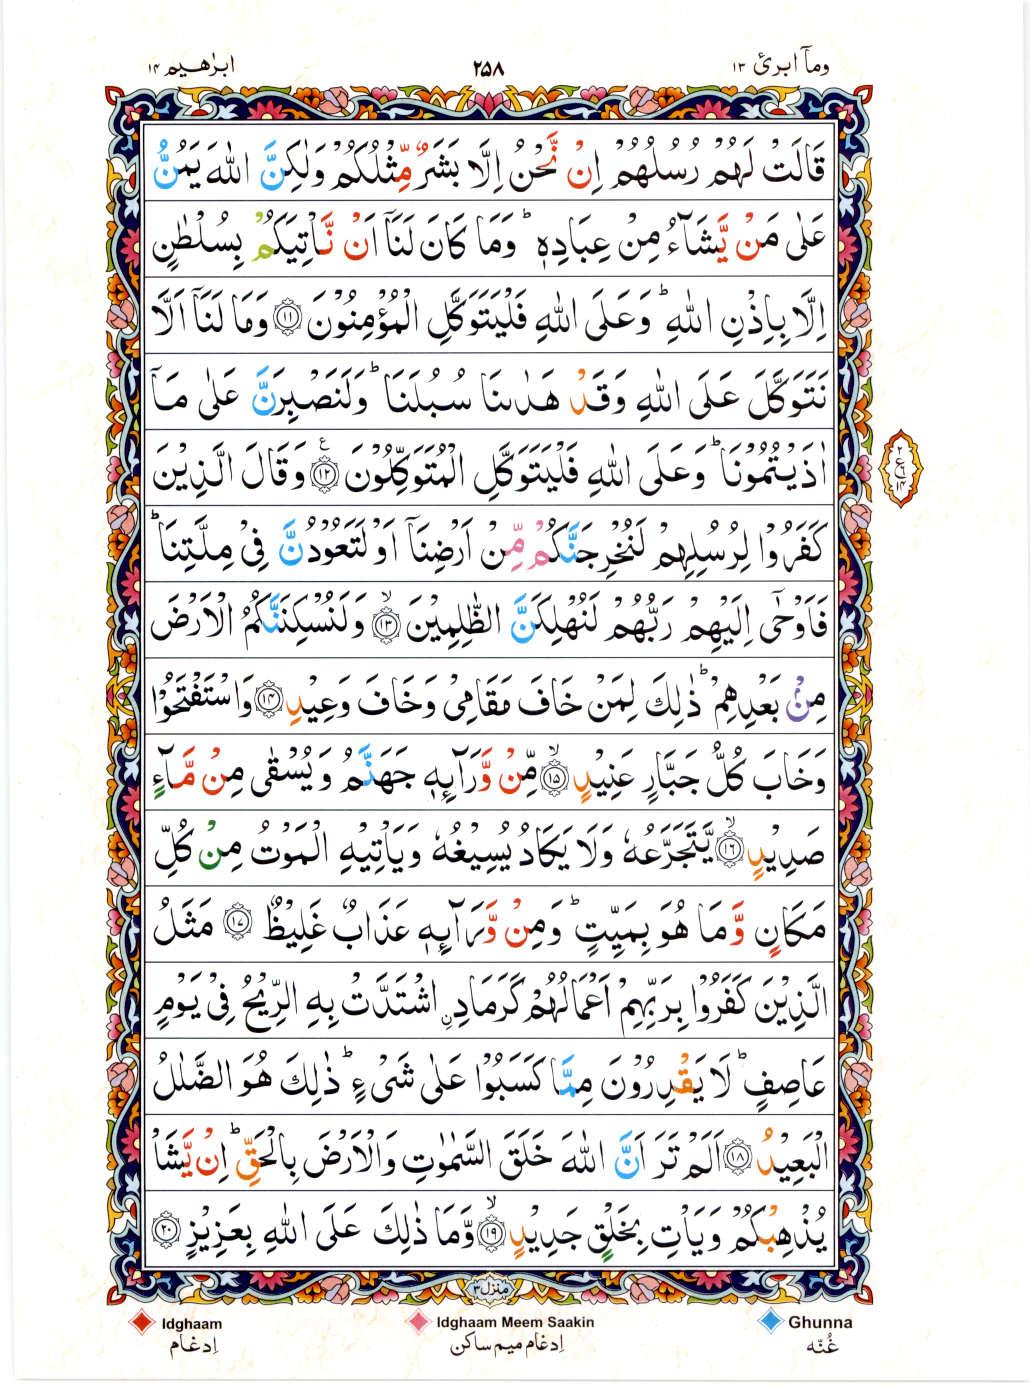 ابرٰهيم ١٤ ٢٥٨ ومآ ابرئ ١٣
قَالَتْ لَهُمْ رُسُلُهُمْ اِنْ نَّحْنُ اِلَّا بَشَرٌ مِّثْلُكُمْ وَلٰكِنَّ اللّٰهَ يَمُنُّ
عَلٰى مَنْ يَّشَآءُ مِنْ عِبَادِهٖ ؕ وَمَا كَانَ لَنَاۤ اَنْ نَّاْتِيَكُمْ بِسُلْطٰنٍ
اِلَّا بِاِذْنِ اللّٰهِ ؕ وَعَلَى اللّٰهِ فَلْيَتَوَكَّلِ الْمُؤْمِنُوْنَ ١١ وَمَا لَنَاۤ اَلَّا
نَتَوَكَّلَ عَلَى اللّٰهِ وَقَدْ هَدٰٮنَا سُبُلَنَا ؕ وَلَنَصْبِرَنَّ عَلٰى مَاۤ
اٰذَيْتُمُوْنَا ؕ وَعَلَى اللّٰهِ فَلْيَتَوَكَّلِ الْمُتَوَكِّلُوْنَ ١٢ ع وَقَالَ الَّذِيْنَ
كَفَرُوْا لِرُسُلِهِمْ لَنُخْرِجَنَّكُمْ مِّنْ اَرْضِنَاۤ اَوْ لَتَعُوْدُنَّ فِىْ مِلَّتِنَا ؕ
فَاَوْحٰۤى اِلَيْهِمْ رَبُّهُمْ لَنُهْلِكَنَّ الظّٰلِمِيْنَ ۙ ١٣ وَلَنُسْكِنَنَّكُمُ الْاَرْضَ
مِنْۢ بَعْدِهِمْ ؕ ذٰلِكَ لِمَنْ خَافَ مَقَامِىْ وَخَافَ وَعِيْدِ ١٤ وَاسْتَفْتَحُوْا
وَخَابَ كُلُّ جَبَّارٍ عَنِيْدٍ ۙ ١٥ مِّنْ وَّرَآئِهٖ جَهَنَّمُ وَيُسْقٰى مِنْ مَّآءٍ
صَدِيْدٍ ۙ ١٦ يَّتَجَرَّعُهٗ وَلَا يَكَادُ يُسِيْغُهٗ وَيَاْتِيْهِ الْمَوْتُ مِنْ كُلِّ
مَكَانٍ وَّمَا هُوَ بِمَيِّتٍ ؕ وَمِنْ وَّرَآئِهٖ عَذَابٌ غَلِيْظٌ ١٧ مَثَلُ
الَّذِيْنَ كَفَرُوْا بِرَبِّهِمْ اَعْمَالُهُمْ كَرَمَادِ ۨاشْتَدَّتْ بِهِ الرِّيْحُ فِىْ يَوْمٍ
عَاصِفٍ ؕ لَا يَقْدِرُوْنَ مِمَّا كَسَبُوْا عَلٰى شَىْءٍ ؕ ذٰلِكَ هُوَ الضَّلٰلُ
الْبَعِيْدُ ١٨ اَلَمْ تَرَ اَنَّ اللّٰهَ خَلَقَ السَّمٰوٰتِ وَالْاَرْضَ بِالْحَقِّ ؕ اِنْ يَّشَاْ
يُذْهِبْكُمْ وَيَاْتِ بِخَلْقٍ جَدِيْدٍ ۙ ١٩ وَّمَا ذٰلِكَ عَلَى اللّٰهِ بِعَزِيْزٍ ٢٠
منزل ٣
Idghaam Idghaam Meem Saakin Ghunna
اِدغام اِدغام ميم ساكن غُنّه